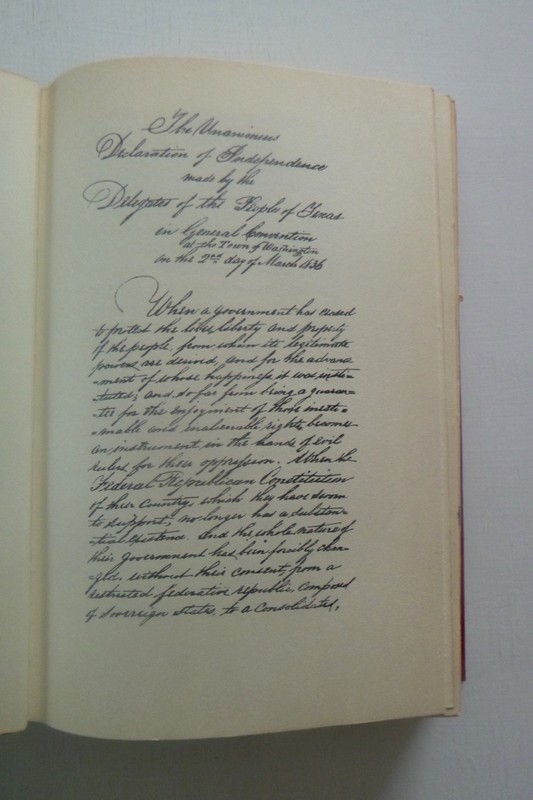 The Unanimous
Declaration of Independence
made by the
Delegates of the People of Texas
in General Convention
at the Town of Washington
on the 2nd day of March 1836
When a government has ceased
to protect the lives, liberty and property
of the people from whom its legitimate
powers are derived, and for the advance
-ment of whose happiness it was insti-
-tuted; and so far from being a guaran-
-tee for the enjoyment of those inesti-
-mable and inalienable rights, becomes
an instrument in the hands of evil
rulers for their oppression. When the
Federal Republican Constitution
of their Country, which they have sworn
to support, no longer has a substan-
-tial existence, and the whole nature of
their government has been forcibly chan-
-ged, without their consent, from a
restricted federative republic, composed
of Sovereign States, to a Consolidated,